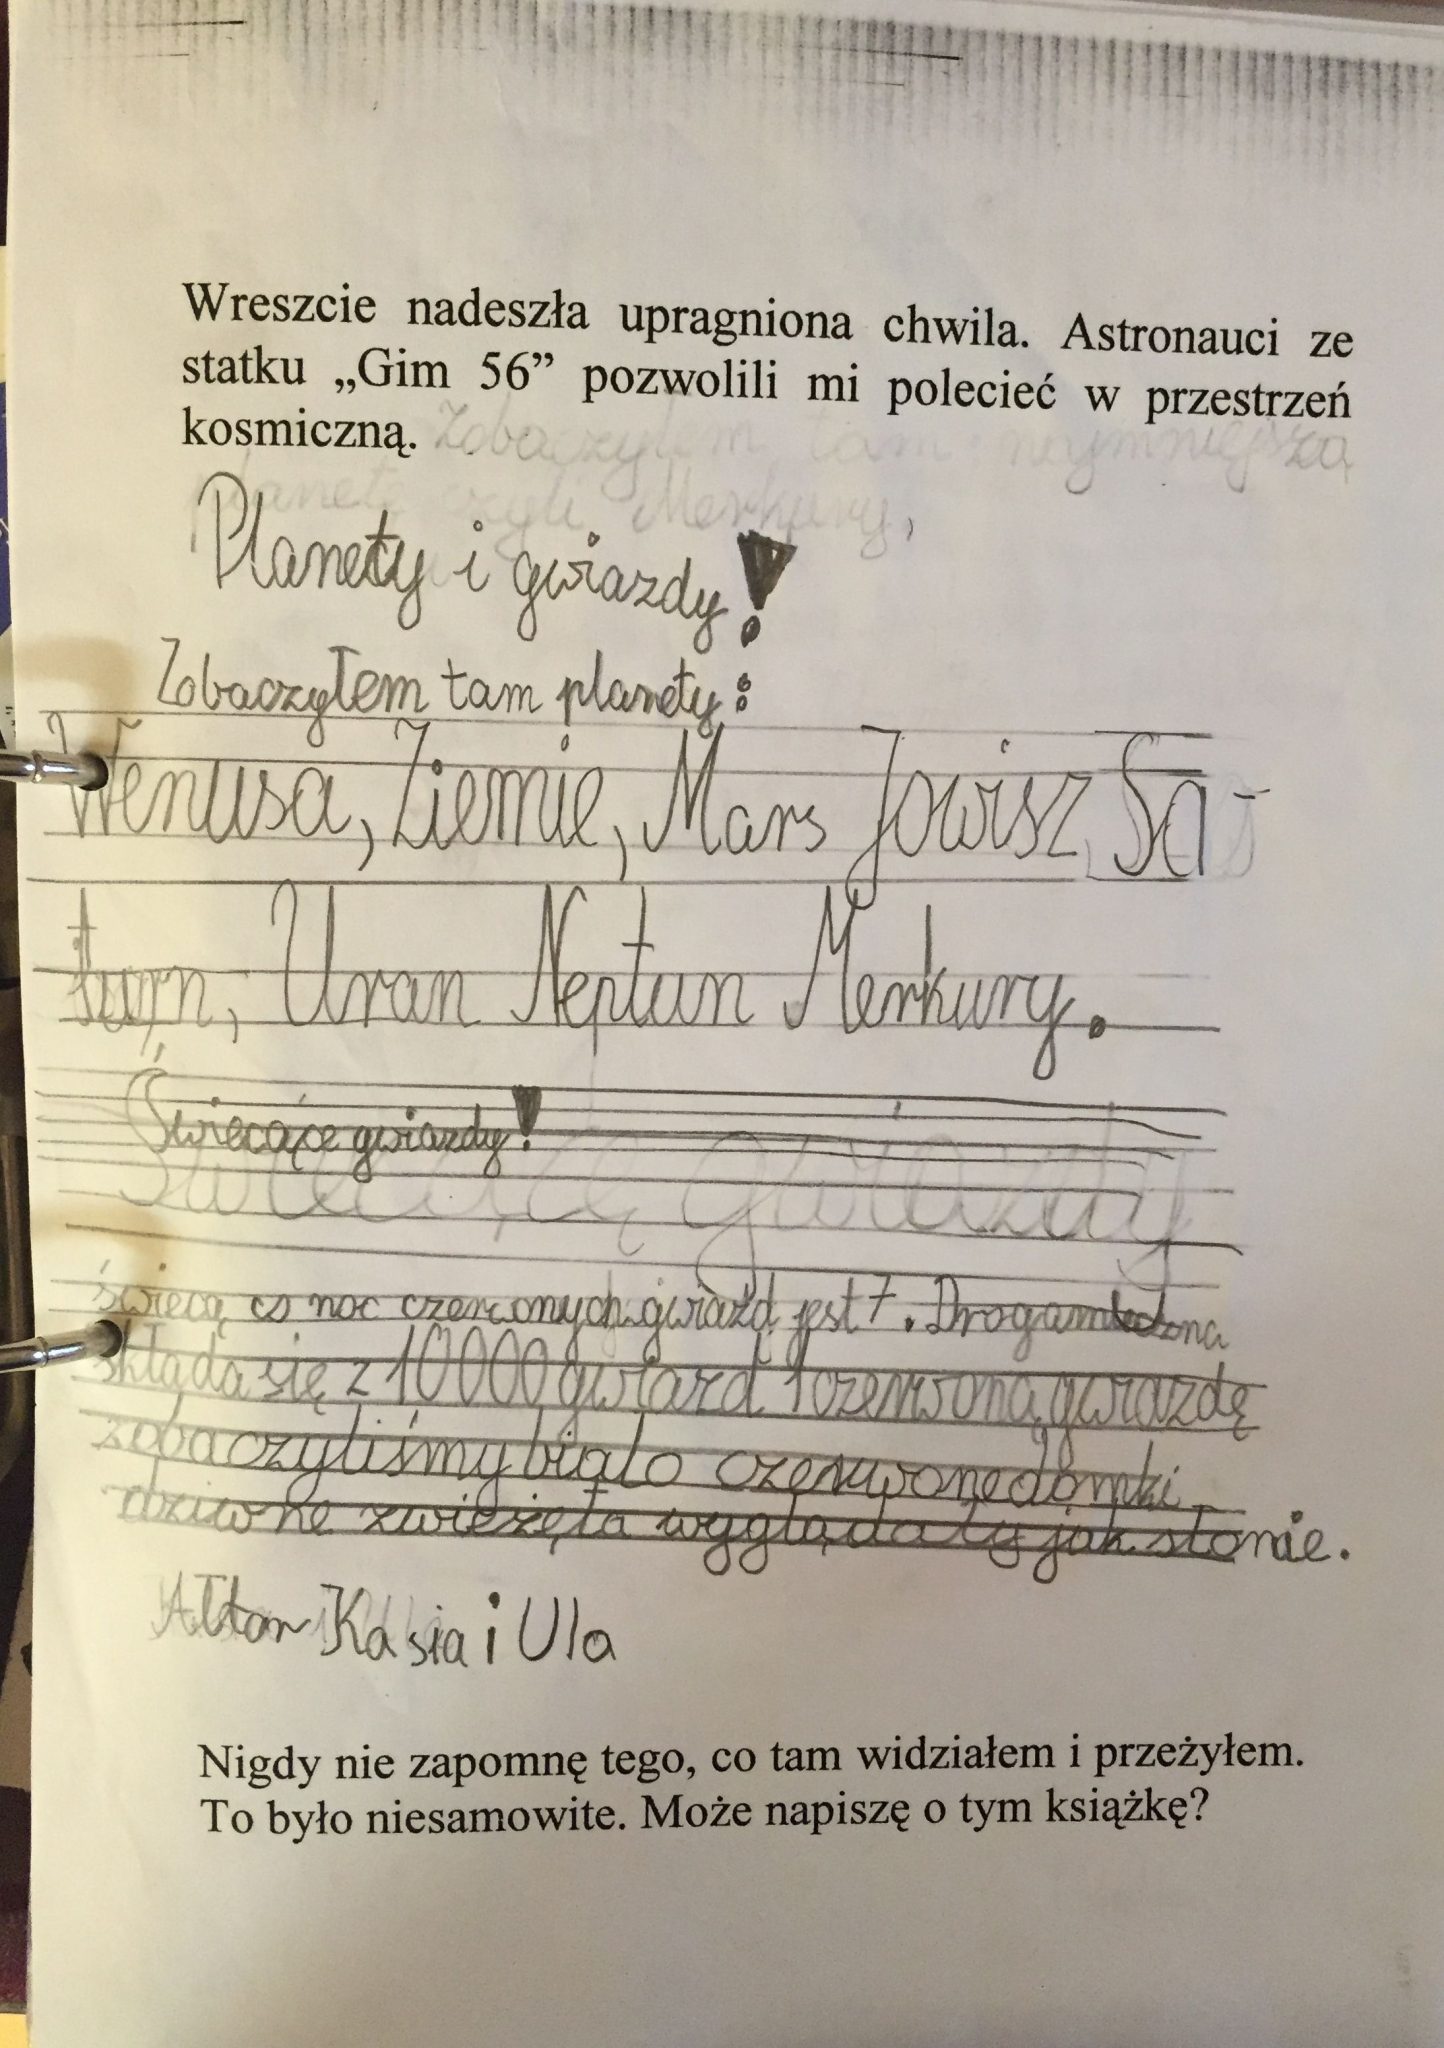 Wreszcie nadeszła upragniona chwila. Astronauci ze
statku „Gim 56” pozwolili mi polecieć w przestrzeń
kosmiczną. Zobaczyłem tam najmniejszą
planetę czyli Merkury,
Planety i gwiazdy!
Zobaczyłem tam planety:
Wenusa, Ziemie, Mars Jowisz Sa-
turn, Uran Neptun Merkury.
Świecące gwiazdy!
Świecące gwiazdy
świecą co noc czerwonych gwiazd jest 7. Droga
składa się z 10000 gwiazd 1 czerwoną gwiazdę
zobaczyliśmy biało czerwone domki
dziwne zwieżęta wyglądały jak słonie.
Kasia i Ula
Nigdy nie zapomnę tego, co tam widziałem i przeżyłem.
To było niesamowite. Może napiszę o tym książkę?